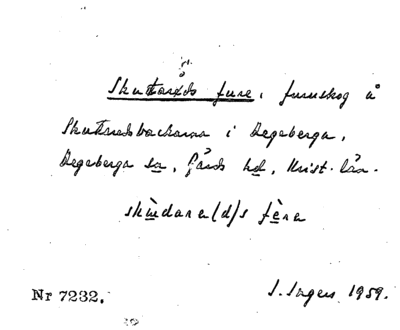 Skuttaröds fure, furuskog å
Skuttrudsbackarna i Degeberga,
Degeberga sn, Gärds hd, Krist. län.
skùdara(d)s fèra
Nr 7232. S. Ingers 1959.